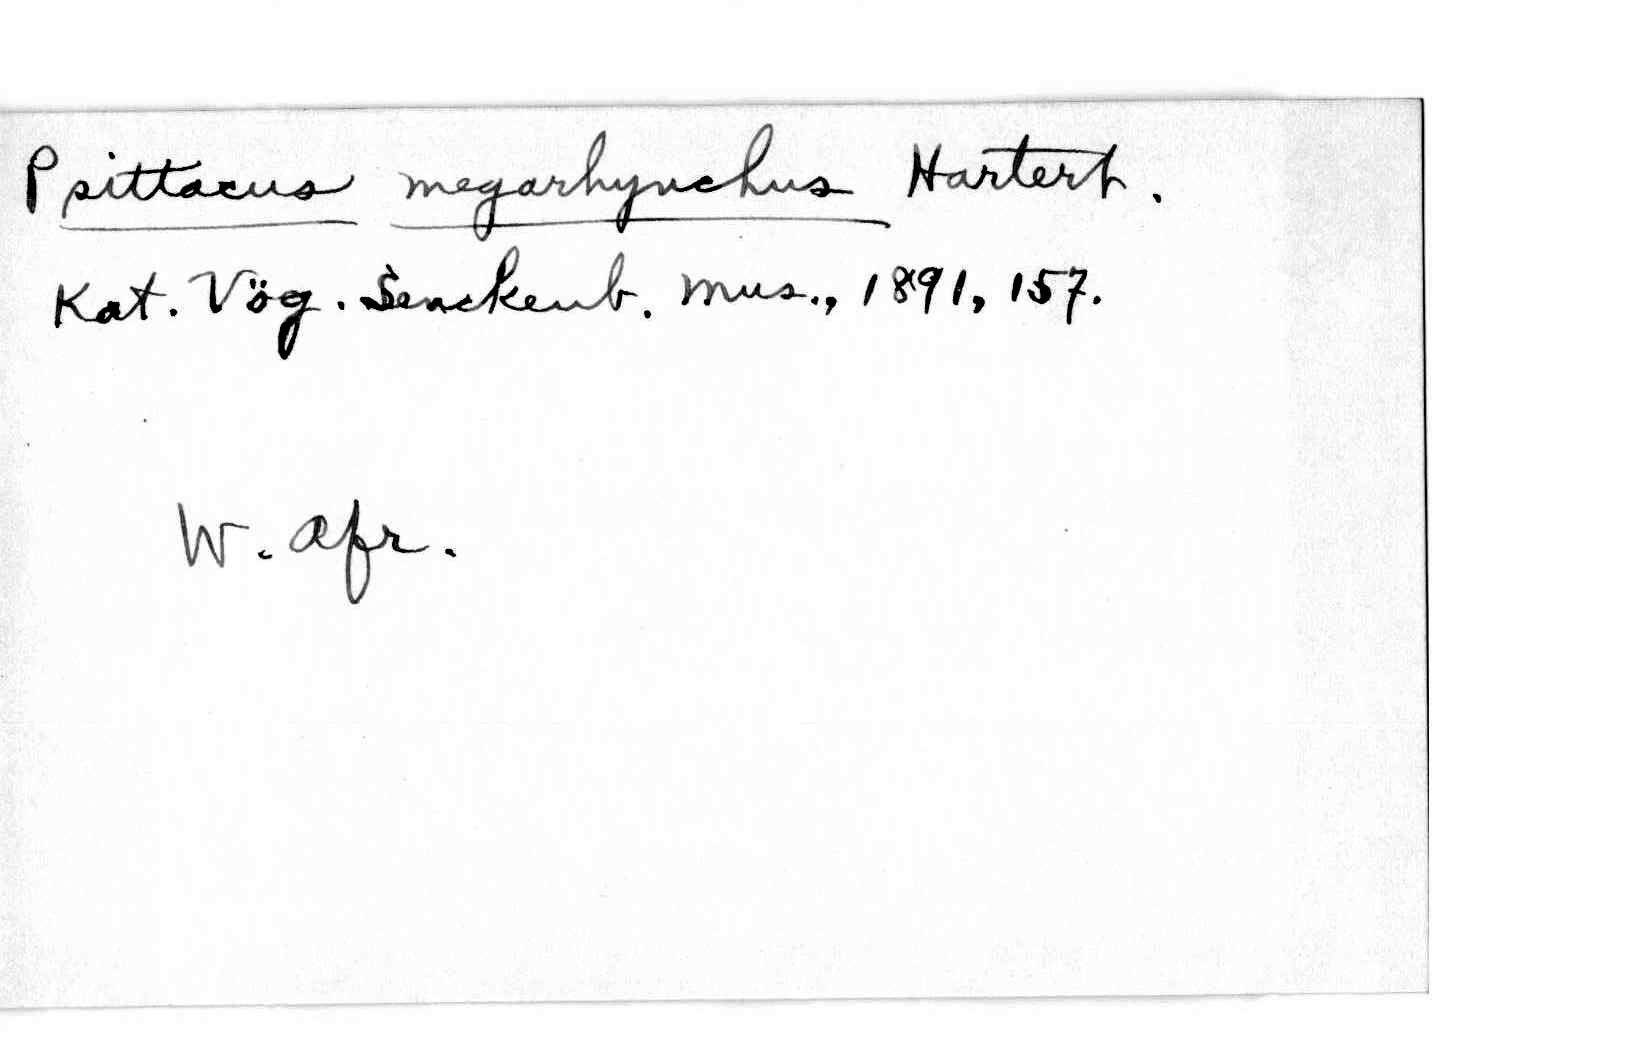 Psittacus megarhynchus Hartert.
Kat. Vög. Senckenb. Mus., 1891, 157.
W. Afr.